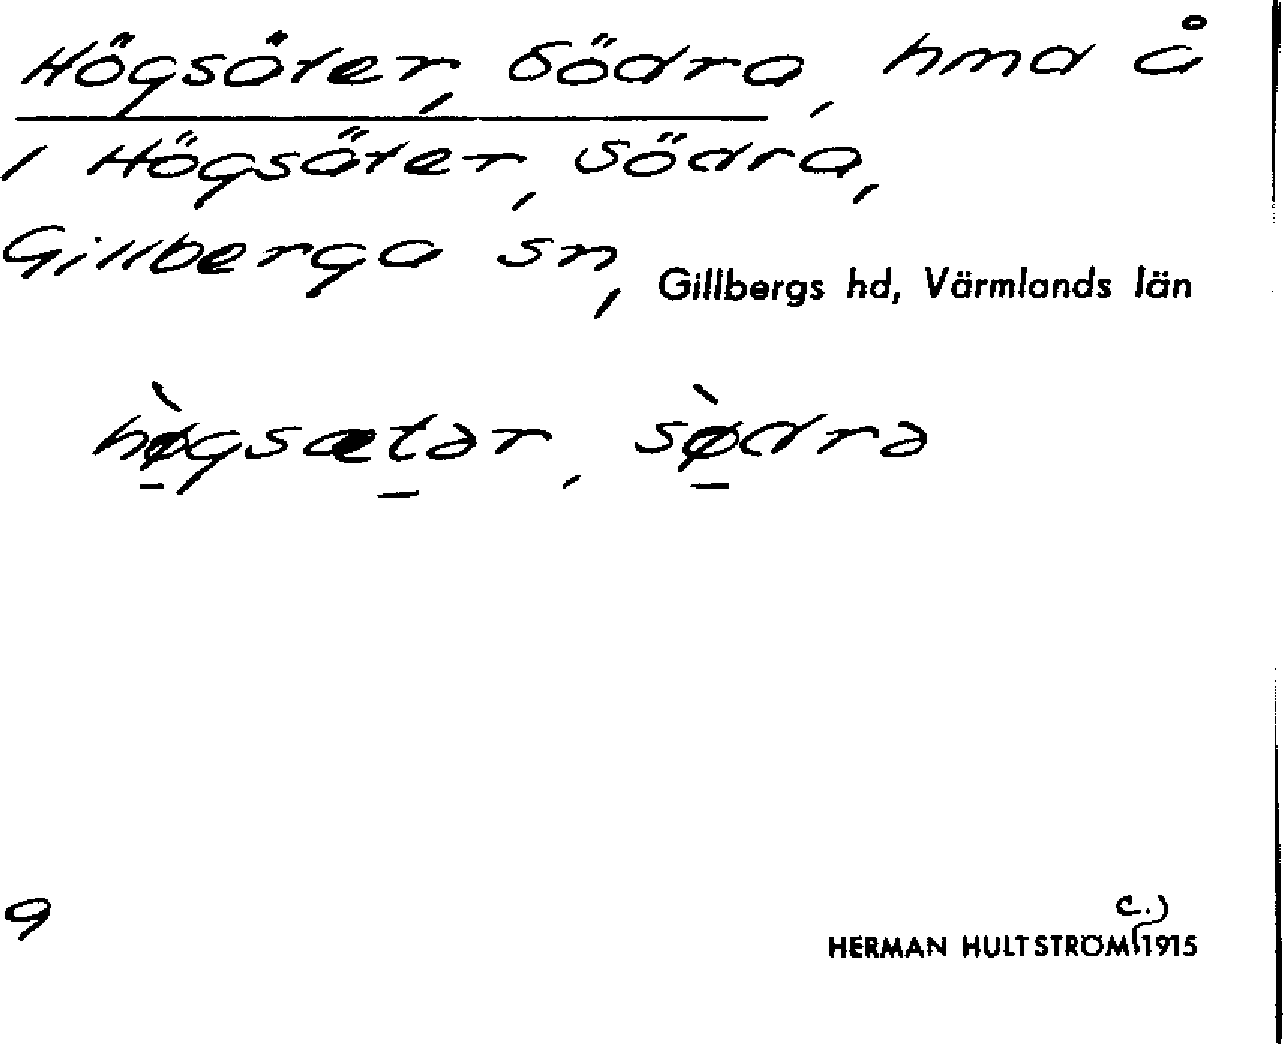 Högsäter, Södra, hmd å
1 Högsäter, Södra,
Gillberga sn, Gillbergs hd, Värmlands län
hø̀gsætər, sø̀drə
9
c.)
HERMAN HULTSTRÖM 1915